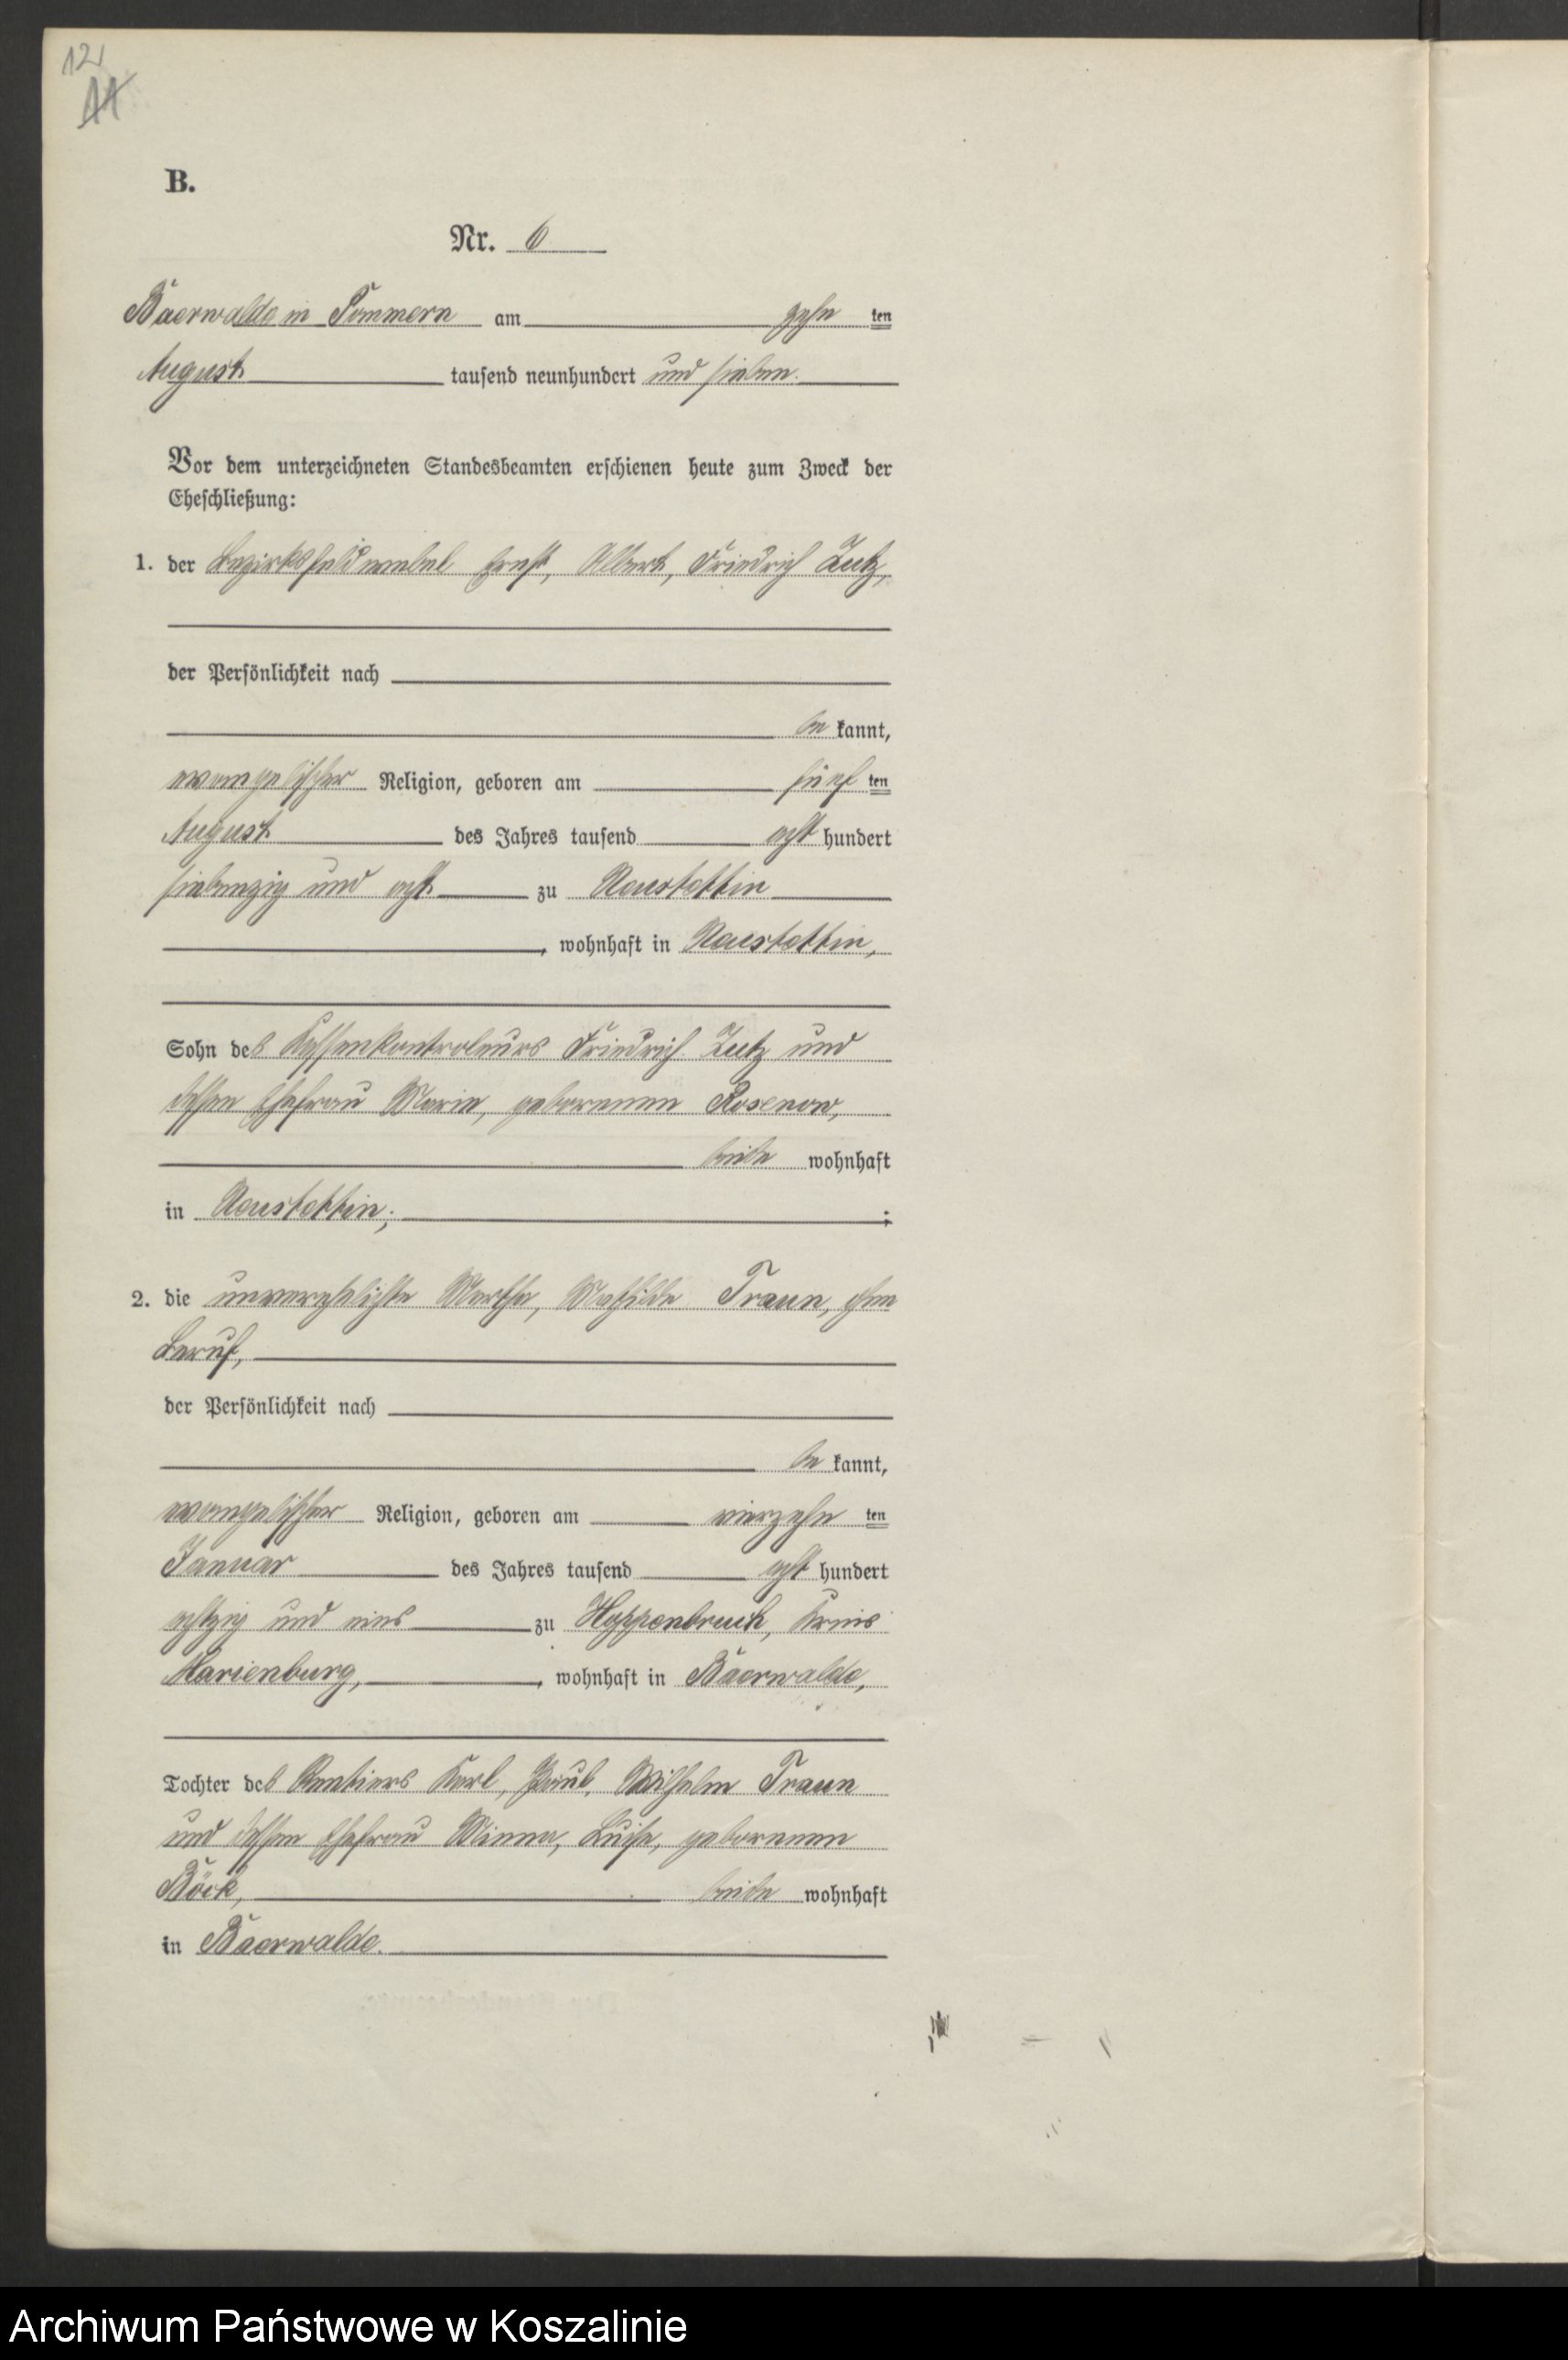 12
11
B.
Nr. 6
Baerwalde in Pommern am zehn ten
August tausend neunhundert und sieben.
Vor dem unterzeichneten Standesbeamten erschienen heute zum Zweck der
Eheschließung:
1. der Bezirksfeldwebel Ernst, Albert, Friedrich Lutz,
der Persönlichkeit nach
be kannt,
evangelischer Religion, geboren am fünf ten
August des Jahres tausend acht hundert
siebenzig und acht zu Neustettin
, wohnhaft in Neustettin,
Sohn des Kassenkontroleurs Friedrich Lutz und
dessen Ehefrau Marie, geborenen Rosenow,
beide wohnhaft
in Neustettin; ;
2. die unverehelichte Martha, Mathilde Traun, ohne
Beruf,
der Persönlichkeit nach
be kannt,
evangelischer Religion, geboren am vierzehn ten
Januar des Jahres tausend acht hundert
achtzig und eins zu Hoppenbruch, Kreis
Marienburg, , wohnhaft in Baerwalde,
Tochter des Rentiers Karl, Paul, Wilhelm Traun
und dessen Ehefrau Minna, Luise, geborenen
Böck, beide wohnhaft
in Baerwalde.
Archiwum Państwowe w Koszalinie